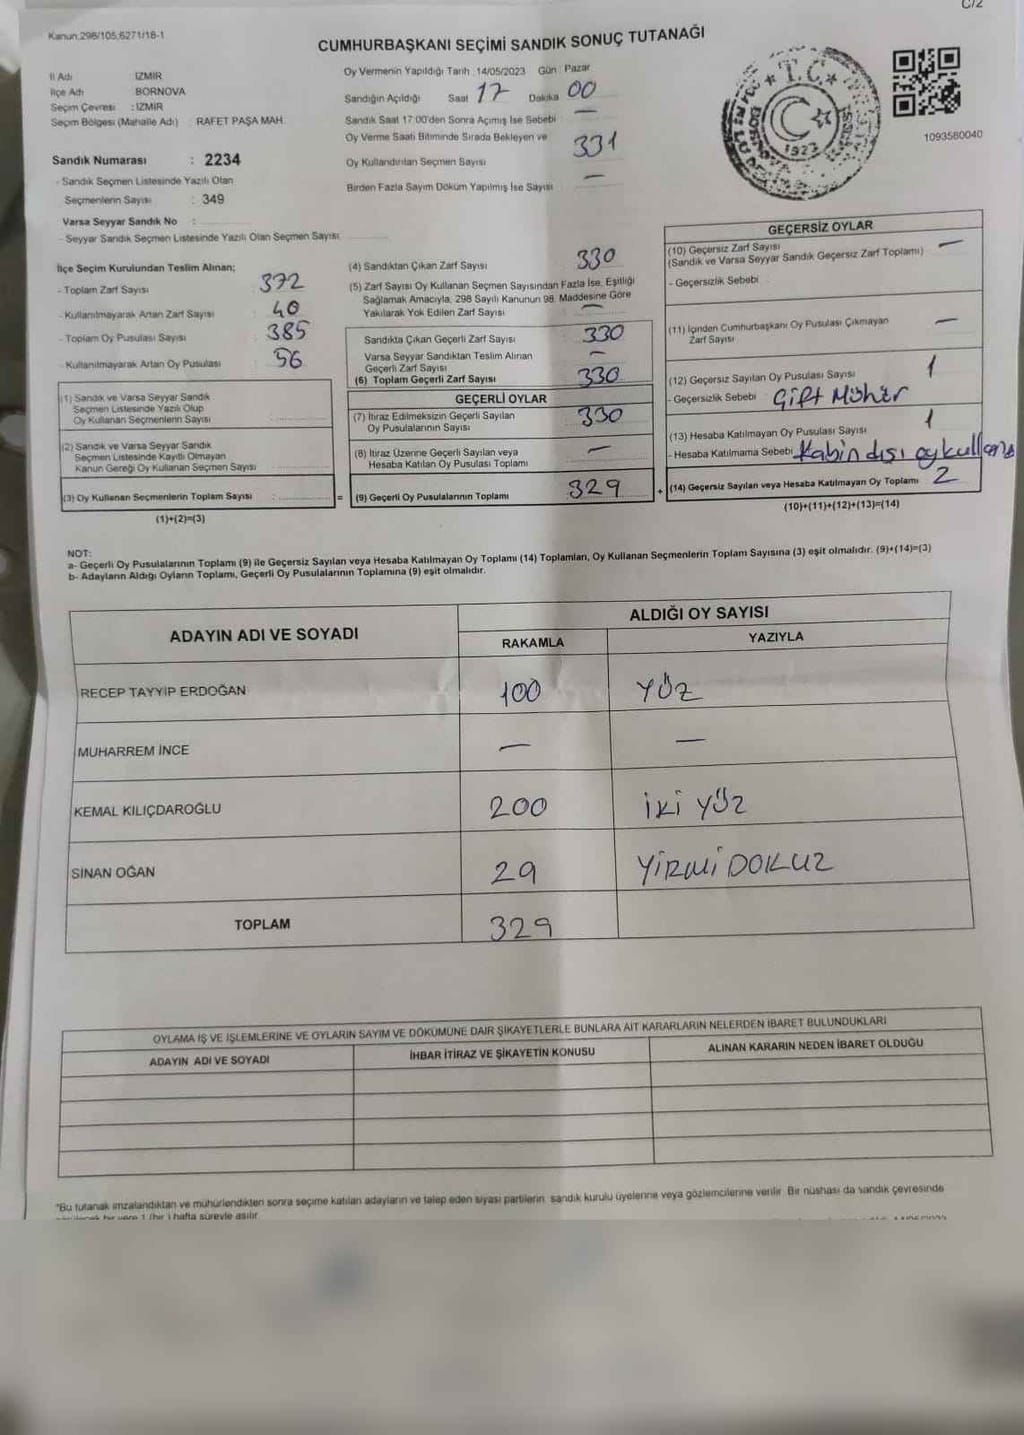 C/2
Kanun.298/105,6271/18-1
CUMHURBAŞKANI SEÇİMİ SANDIK SONUÇ TUTANAĞI
İl Adı İZMİR
İlçe Adı BORNOVA
Seçim Çevresi : İZMİR
Seçim Bölgesi (Mahalle Adı) RAFET PAŞA MAH.
Sandık Numarası : 2234
- Sandık Seçmen Listesinde Yazılı Olan
Seçmenlerin Sayısı : 349
Varsa Seyyar Sandık No :
- Seyyar Sandık Seçmen Listesinde Yazılı Olan Seçmen Sayısı
Oy Vermenin Yapıldığı Tarih : 14/05/2023 Gün : Pazar
Sandığın Açıldığı Saat 17 Dakika 00
Sandık Saat 17:00'den Sonra Açımış İse Sebebi —
Oy Verme Saati Bitiminde Sırada Bekleyen ve
Oy Kullandırılan Seçmen Sayısı 331
Birden Fazla Sayım Döküm Yapılmış İse Sayısı —
T.C.
1923
1093580040
İlçe Seçim Kurulundan Teslim Alınan;
- Toplam Zarf Sayısı 372
- Kullanılmayarak Artan Zarf Sayısı 40
- Toplam Oy Pusulası Sayısı 385
- Kullanılmayarak Artan Oy Pusulası 56
(1) Sandık ve Varsa Seyyar Sandık
Seçmen Listesinde Yazılı Olup
Oy Kullanan Seçmenlerin Sayısı
(2) Sandık ve Varsa Seyyar Sandık
Seçmen Listesinde Kayıtlı Olmayan
Kanun Gereği Oy Kullanan Seçmen Sayısı
(3) Oy Kullanan Seçmenlerin Toplam Sayısı : =
(1)+(2)=(3)
(4) Sandıktan Çıkan Zarf Sayısı 330
(5) Zarf Sayısı Oy Kullanan Seçmen Sayısından Fazla İse, Eşitliği
Sağlamak Amacıyla, 298 Sayılı Kanunun 98. Maddesine Göre
Yakılarak Yok Edilen Zarf Sayısı —
Sandıkta Çıkan Geçerli Zarf Sayısı 330
Varsa Seyyar Sandıktan Teslim Alınan
Geçerli Zarf Sayısı —
(6) Toplam Geçerli Zarf Sayısı 330
GEÇERLİ OYLAR
(7) İtiraz Edilmeksizin Geçerli Sayılan
Oy Pusulalarının Sayısı 330
(8) İtiraz Üzerine Geçerli Sayılan veya
Hesaba Katılan Oy Pusulası Toplamı —
(9) Geçerli Oy Pusulalarının Toplamı 329 +
GEÇERSİZ OYLAR
(10) Geçersiz Zarf Sayısı —
(Sandık ve Varsa Seyyar Sandık Geçersiz Zarf Toplamı)
- Geçersizlik Sebebi
(11) İçinden Cumhurbaşkanı Oy Pusulası Çıkmayan
Zarf Sayısı —
(12) Geçersiz Sayılan Oy Pusulası Sayısı 1
- Geçersizlik Sebebi Çift Mühür
(13) Hesaba Katılmayan Oy Pusulası Sayısı 1
- Hesaba Katılmama Sebebi Kabin dışı oy kullanma
(14) Geçersiz Sayılan veya Hesaba Katılmayan Oy Toplamı 2
(10)+(11)+(12)+(13)=(14)
NOT:
a- Geçerli Oy Pusulalarının Toplamı (9) ile Geçersiz Sayılan veya Hesaba Katılmayan Oy Toplamı (14) Toplamları, Oy Kullanan Seçmenlerin Toplam Sayısına (3) eşit olmalıdır. (9)+(14)=(3)
b- Adayların Aldığı Oyların Toplamı, Geçerli Oy Pusulalarının Toplamına (9) eşit olmalıdır.
ADAYIN ADI VE SOYADI
ALDIĞI OY SAYISI
RAKAMLA YAZIYLA
RECEP TAYYİP ERDOĞAN 100 YÜZ
MUHARREM İNCE — —
KEMAL KILIÇDAROĞLU 200 İKİ YÜZ
SİNAN OĞAN 29 YİRMİ DOKUZ
TOPLAM 329
OYLAMA İŞ VE İŞLEMLERİNE VE OYLARIN SAYIM VE DÖKÜMÜNE DAİR ŞİKAYETLERLE BUNLARA AİT KARARLARIN NELERDEN İBARET BULUNDUKLARI
ADAYIN ADI VE SOYADI İHBAR İTİRAZ VE ŞİKAYETİN KONUSU ALINAN KARARIN NEDEN İBARET OLDUĞU
*Bu tutanak imzalandıktan ve mühürlendikten sonra seçime katılan adayların ve talep eden siyasi partilerin sandık kurulu üyelerine veya gözlemcilerine verilir. Bir nüshası da sandık çevresinde
bir yere 1 (bir) hafta süreyle asılır.